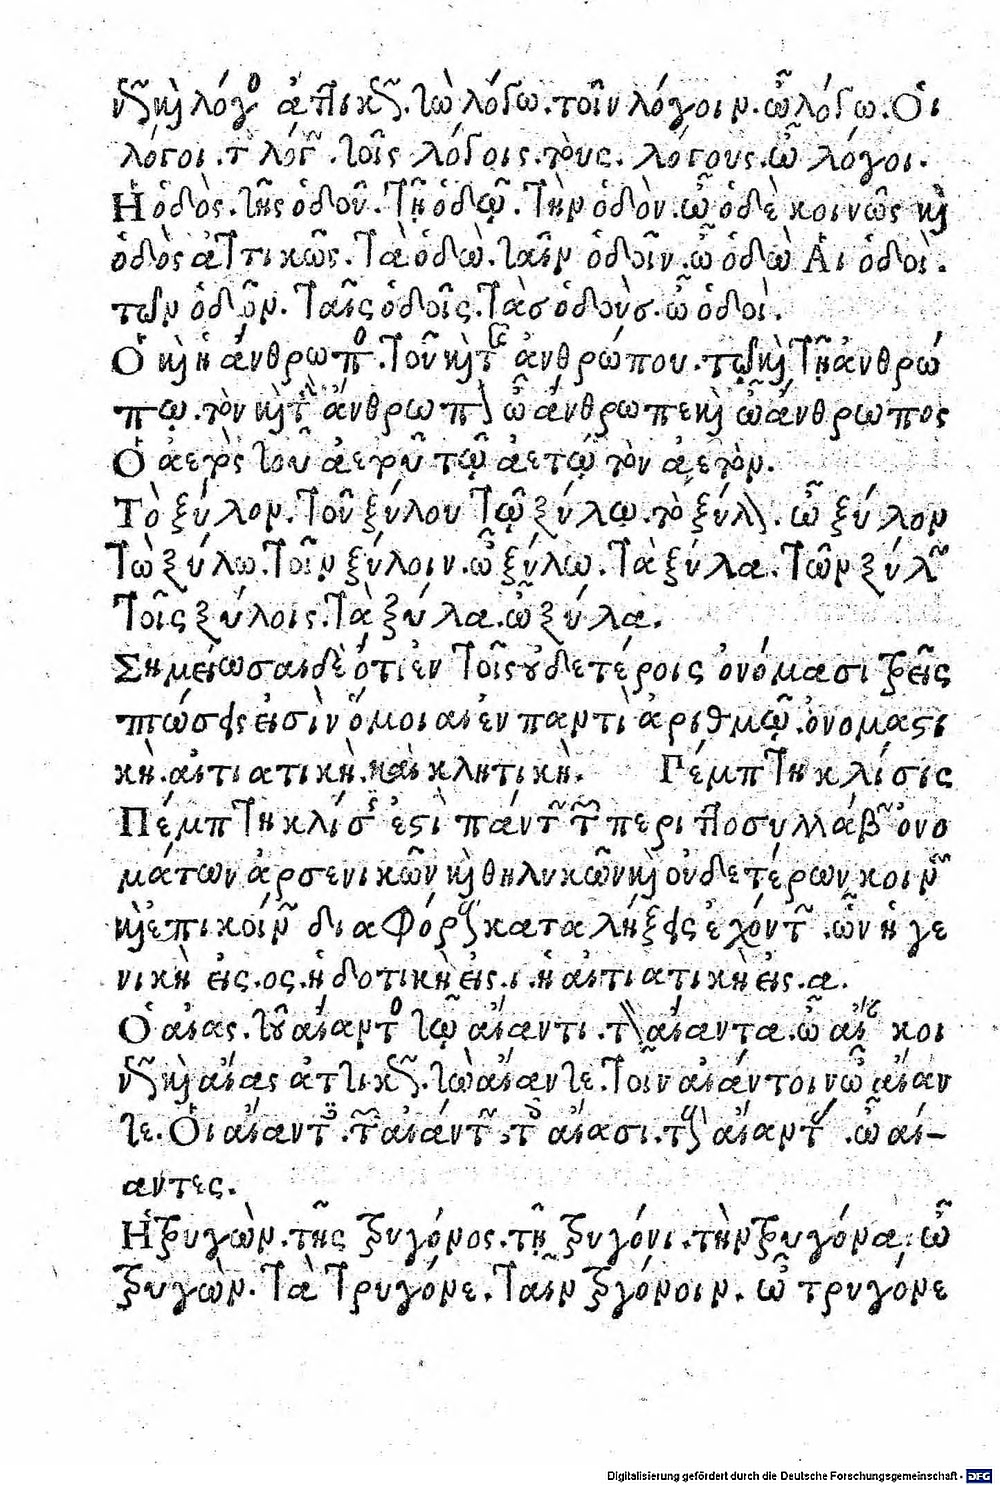 νῶς καὶ λόγος ἀττικῶς. τὼ λόγω. τοῖν λόγοιν. ὦ λόγω. Οἱ
λόγοι. τῶν λόγων. τοῖς λόγοις. τοὺς. λόγους. ὦ λόγοι.
Ἡ ὁδὸς. τῆς ὁδοῦ. τῇ ὁδῷ. τὴν ὁδὸν. ὦ ὁδὲ κοινῶς καὶ
ὁδὸς ἀττικῶς. τὰ ὁδὼ. ταῖν ὁδοῖν. ὦ ὁδὼ Αἱ ὁδοὶ.
τῶν ὁδῶν. ταῖς ὁδοῖς. τὰσ ὁδοὺσ. ὦ ὁδοὶ.
Ὁ καὶ ἡ ἄνθρωπος. τοῦ καὶ τῆς ἀνθρώπου. τῷ καὶ τῇ ἀνθρώ
πῳ. τὸν καὶ τὴν ἄνθρωπον ὦ ἄνθρωπε καὶ ὦ ἄνθρωπος
Ὁ ἀετὸς τοῦ ἀετοῦ τῷ ἀετῷ τὸν ἀετὸν.
Τὸ ξύλον. τοῦ ξύλου τῷ ξύλῳ. τὸ ξύλον. ὦ ξύλον
Τὼ ξύλω. τοῖν ξύλοιν. ὦ ξύλω. τὰ ξύλα. τῶν ξύλων
Τοῖς ξύλοις. τὰ ξύλα. ὦ ξύλα.
Σημείωσαι δὲ ὅτι ἐν τοῖς οὐδετέροις ὀνόμασι τρεῖς
πτώσεις εἰσὶν ὅμοιαι ἐν παντὶ ἀριθμῷ. ὀνομαστι
κὴ. αἰτιατικὴ. καὶ κλητικὴ. Πέμπτη κλίσις
Πέμπτη κλίσις ἐστὶ πάντων τῶν περιττοσυλλάβων ὀνο
μάτων ἀρσενικῶν καὶ θηλυκῶν καὶ οὐδετέρων κοινῶν
καὶ ἐπικοίνων διαφόρους καταλήξεις ἐχόντων. ὧν ἡ γε
νικὴ εἰς. ος. ἡ δοτικὴ εἰς. ι. ἡ αἰτιατικὴ εἰς. α.
Ὁ αἴας. τοῦ αἴαντος τῷ αἴαντι. τὸν αἴαντα. ὦ αἶαν κοι
νῶς καὶ αἴας ἀττικῶς. τὼ αἴαντε. τοῖν αἰάντοιν ὦ αἴαν
τε. Οἱ αἴαντες. τῶν αἰάντων. τοῖς αἴασι. τοὺς αἴαντας. ὦ αἴ-
αντες.
Ἡ τρυγὼν. τῆς τρυγόνος. τῇ τρυγόνι. τὴν τρυγόνα. ὦ
τρυγὼν. τὰ τρυγόνε. ταῖν τρυγόνοιν. ὦ τρυγόνε
Digitalisierung gefördert durch die Deutsche Forschungsgemeinschaft - DFG